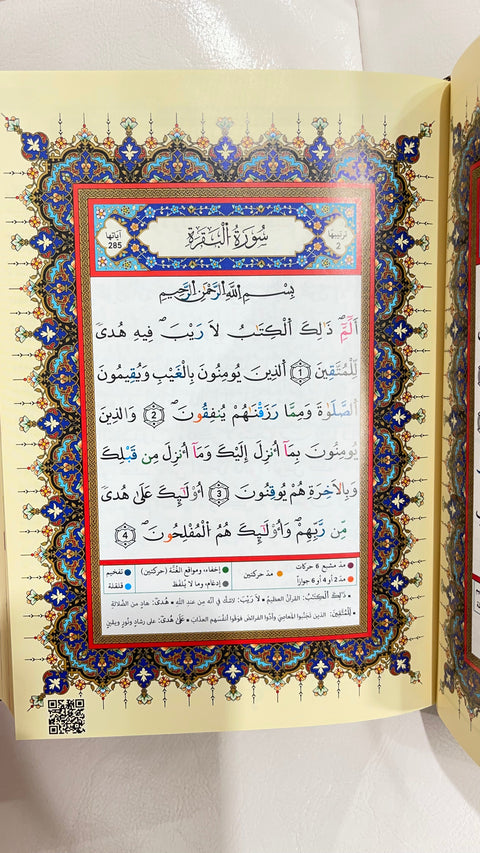 ترتيبها 2
سُورَةُ اُ۬لْبَقَرَةِ
آياتها 285
بِسْمِ اِ۬للَّهِ اِ۬لرَّحْمَٰنِ اِ۬لرَّحِيمِ
أَلَٓمِّٓۖ ذَٰلِكَ اَ۬لْكِتَٰبُ لَا رَيْبَۖ فِيهِ هُدىٗ
لِّلْمُتَّقِينَ 1 اَ۬لذِينَ يُومِنُونَ بِالْغَيْبِ وَيُقِيمُونَ
اَ۬لصَّلَوٰةَ وَمِمَّا رَزَقْنَٰهُمْ يُنفِقُونَۖ 2 وَالذِينَ
يُومِنُونَ بِمَآ أُنزِلَ إِلَيْكَ وَمَآ أُنزِلَ مِن قَبْلِكَ
وَبِالَاخِرَةِ هُمْ يُوقِنُونَ 3 أُوْلَٰٓئِكَ عَلَىٰ هُدىٗ
مِّن رَّبِّهِمْۖ وَأُوْلَٰٓئِكَ هُمُ اُ۬لْمُفْلِحُونَۖ 4
مدّ مشبع 6 حركات
مدّ 2 أو 4 أو 6 جوازاً
مدّ حركتين
إخفاء، ومواقع الغُنَّة (حركتين)
إدغام، وما لا يُلفَظ
تفخيم
قلقلة
• ذَٰلِكَ اَ۬لْكِتَٰبُ: القرآن العظيم • لَا رَيْبَ: لاشكَّ في أنّه مِن عند الله • هُدىٗ: هادٍ من الضلالة
• لِّلْمُتَّقِينَ: الذين تجنّبوا المعاصيَ وأدَّوا الفرائضَ فوَقَوا أنفُسهم العذابَ • عَلَىٰ هُدىٗ: على رشادٍ ونُورٍ ويقينٍ